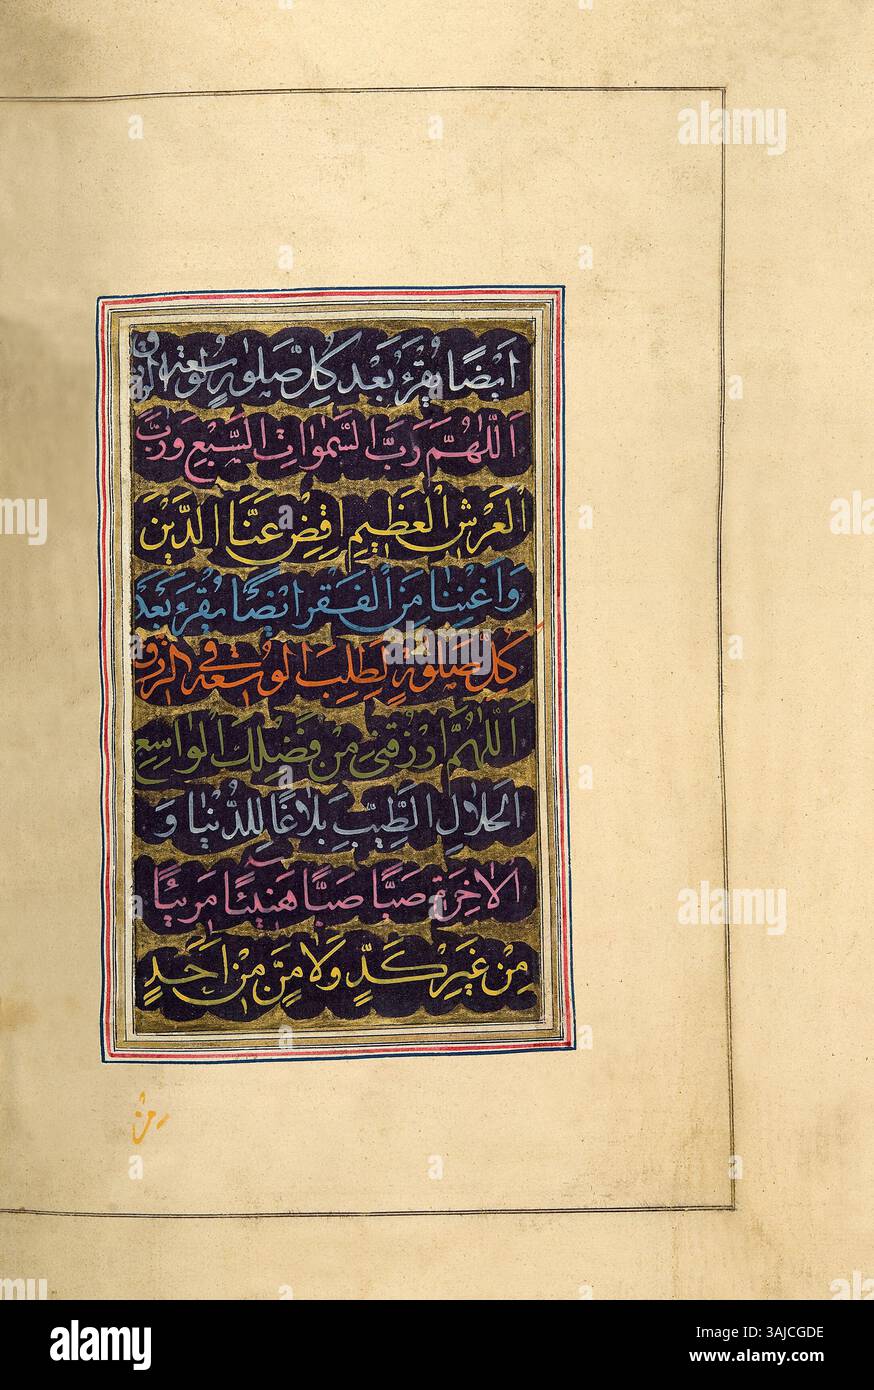 اَيضًا يُقرَءُ بَعدَ كُلِّ صَلوةٍ لِوُسعَةِ الرزق
اَللّٰهُمَّ رَبَّ السَّمٰواتِ السَّبعِ وَرَبَّ
العَرشِ العَظيمِ اِقضِ عَنَّا الدَّينَ
وَاَغنِنا مِنَ الفَقرِ ايضًا يُقرَءُ بَعدَ
كُلِّ صَلوةٍ لِطَلَبِ الوُسعَةِ فِى الرِّزقِ
اَللّٰهُمَّ ارزُقنى مِن فَضلِكَ الواسِعِ
الحَلالِ الطَّيِّبِ بَلاغًا لِلدُّنيا وَ
الاٰخِرَةِ صَبًّا صَبًّا هَنيئًا مَريئًا
مِن غَيرِ كَدٍّ وَلا مَنٍّ مِن اَحَدٍ
من
alamy
Image ID: 3AJCGDE
www.alamy.com